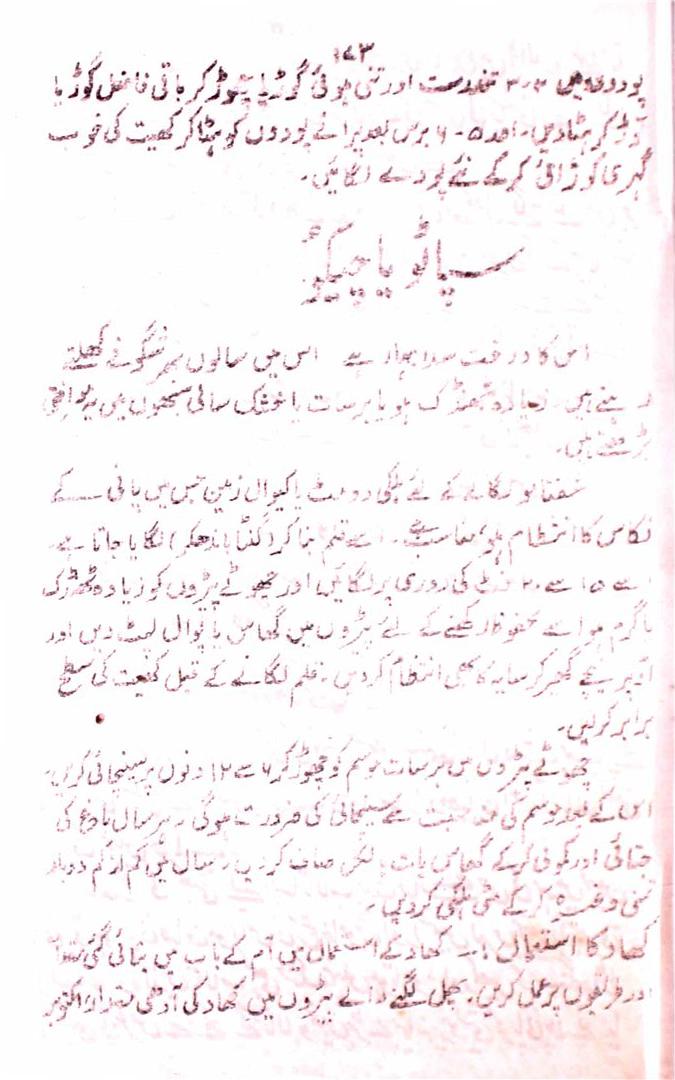 ۱۷۳
پودوں میں ۳-۴ تندرست اور تنی ہوئی گوڑیا چھوڑ کر باقی فاضل گوڑیا
توڑ کر ہٹا دیں۔ اور ۵-۶ برس بعد پرانے پودوں کو ہٹا کر کھیت کی خوب
گہری کوڑائی کر کے نئے پودے لگائیں۔
سپاٹو یا چیکو
اس کا درخت سدا بہار ہے اس میں سالوں بھر شگوفے کھلتے
رہتے ہیں۔ زیادہ ٹھنڈک ہو یا برسات یا خشک سالی سبھوں میں یہ
بڑھتے ہیں۔
لگانے کے لئے ہلکی دومٹ یا کیوال زمین جس میں پانی کے
نکاس کا انتظام ہو مناسب ہے۔ اسے قلم بنا کر (گٹا باندھکر) لگایا جاتا ہے۔
اسے ۱۵ سے ۲۰ فٹ کی دوری پر لگائیں اور چھوٹے پیڑوں کو زیادہ ٹھنڈک
یا گرم ہوا سے محفوظ رکھنے کے لئے پیڑوں میں گھاس یا پوال لپیٹ دیں اور
اوپر نیچے گھیر کر سایہ کا بھی انتظام کر دیں۔ قلم لگانے کے قبل کھیت کی سطح
برابر کر لیں۔
چھوٹے پیڑوں میں برسات موسم کو چھوڑ کر ۶ سے ۱۲ دنوں پر سینچائی کریں۔
اس کے بعد موسم کی مناسبت سے سینچائی کی ضرورت ہوگی۔ ہر سال باغ کی
جتائی اور کوڑنی کر کے گھاس پات بالکل صاف کر دیں۔ سال میں کم از کم دو بار
کمنی وغیرہ کر کے مٹی ہلکی کر دیں۔
کھاد کا استعمال :۔ کھاد کے استعمال میں آم کے باب میں بتائی گئی مقدار
اور طریقوں پر عمل کریں۔ پھل لگنے والے پیڑوں میں کھاد کی آدھی مقدار اکتوبر